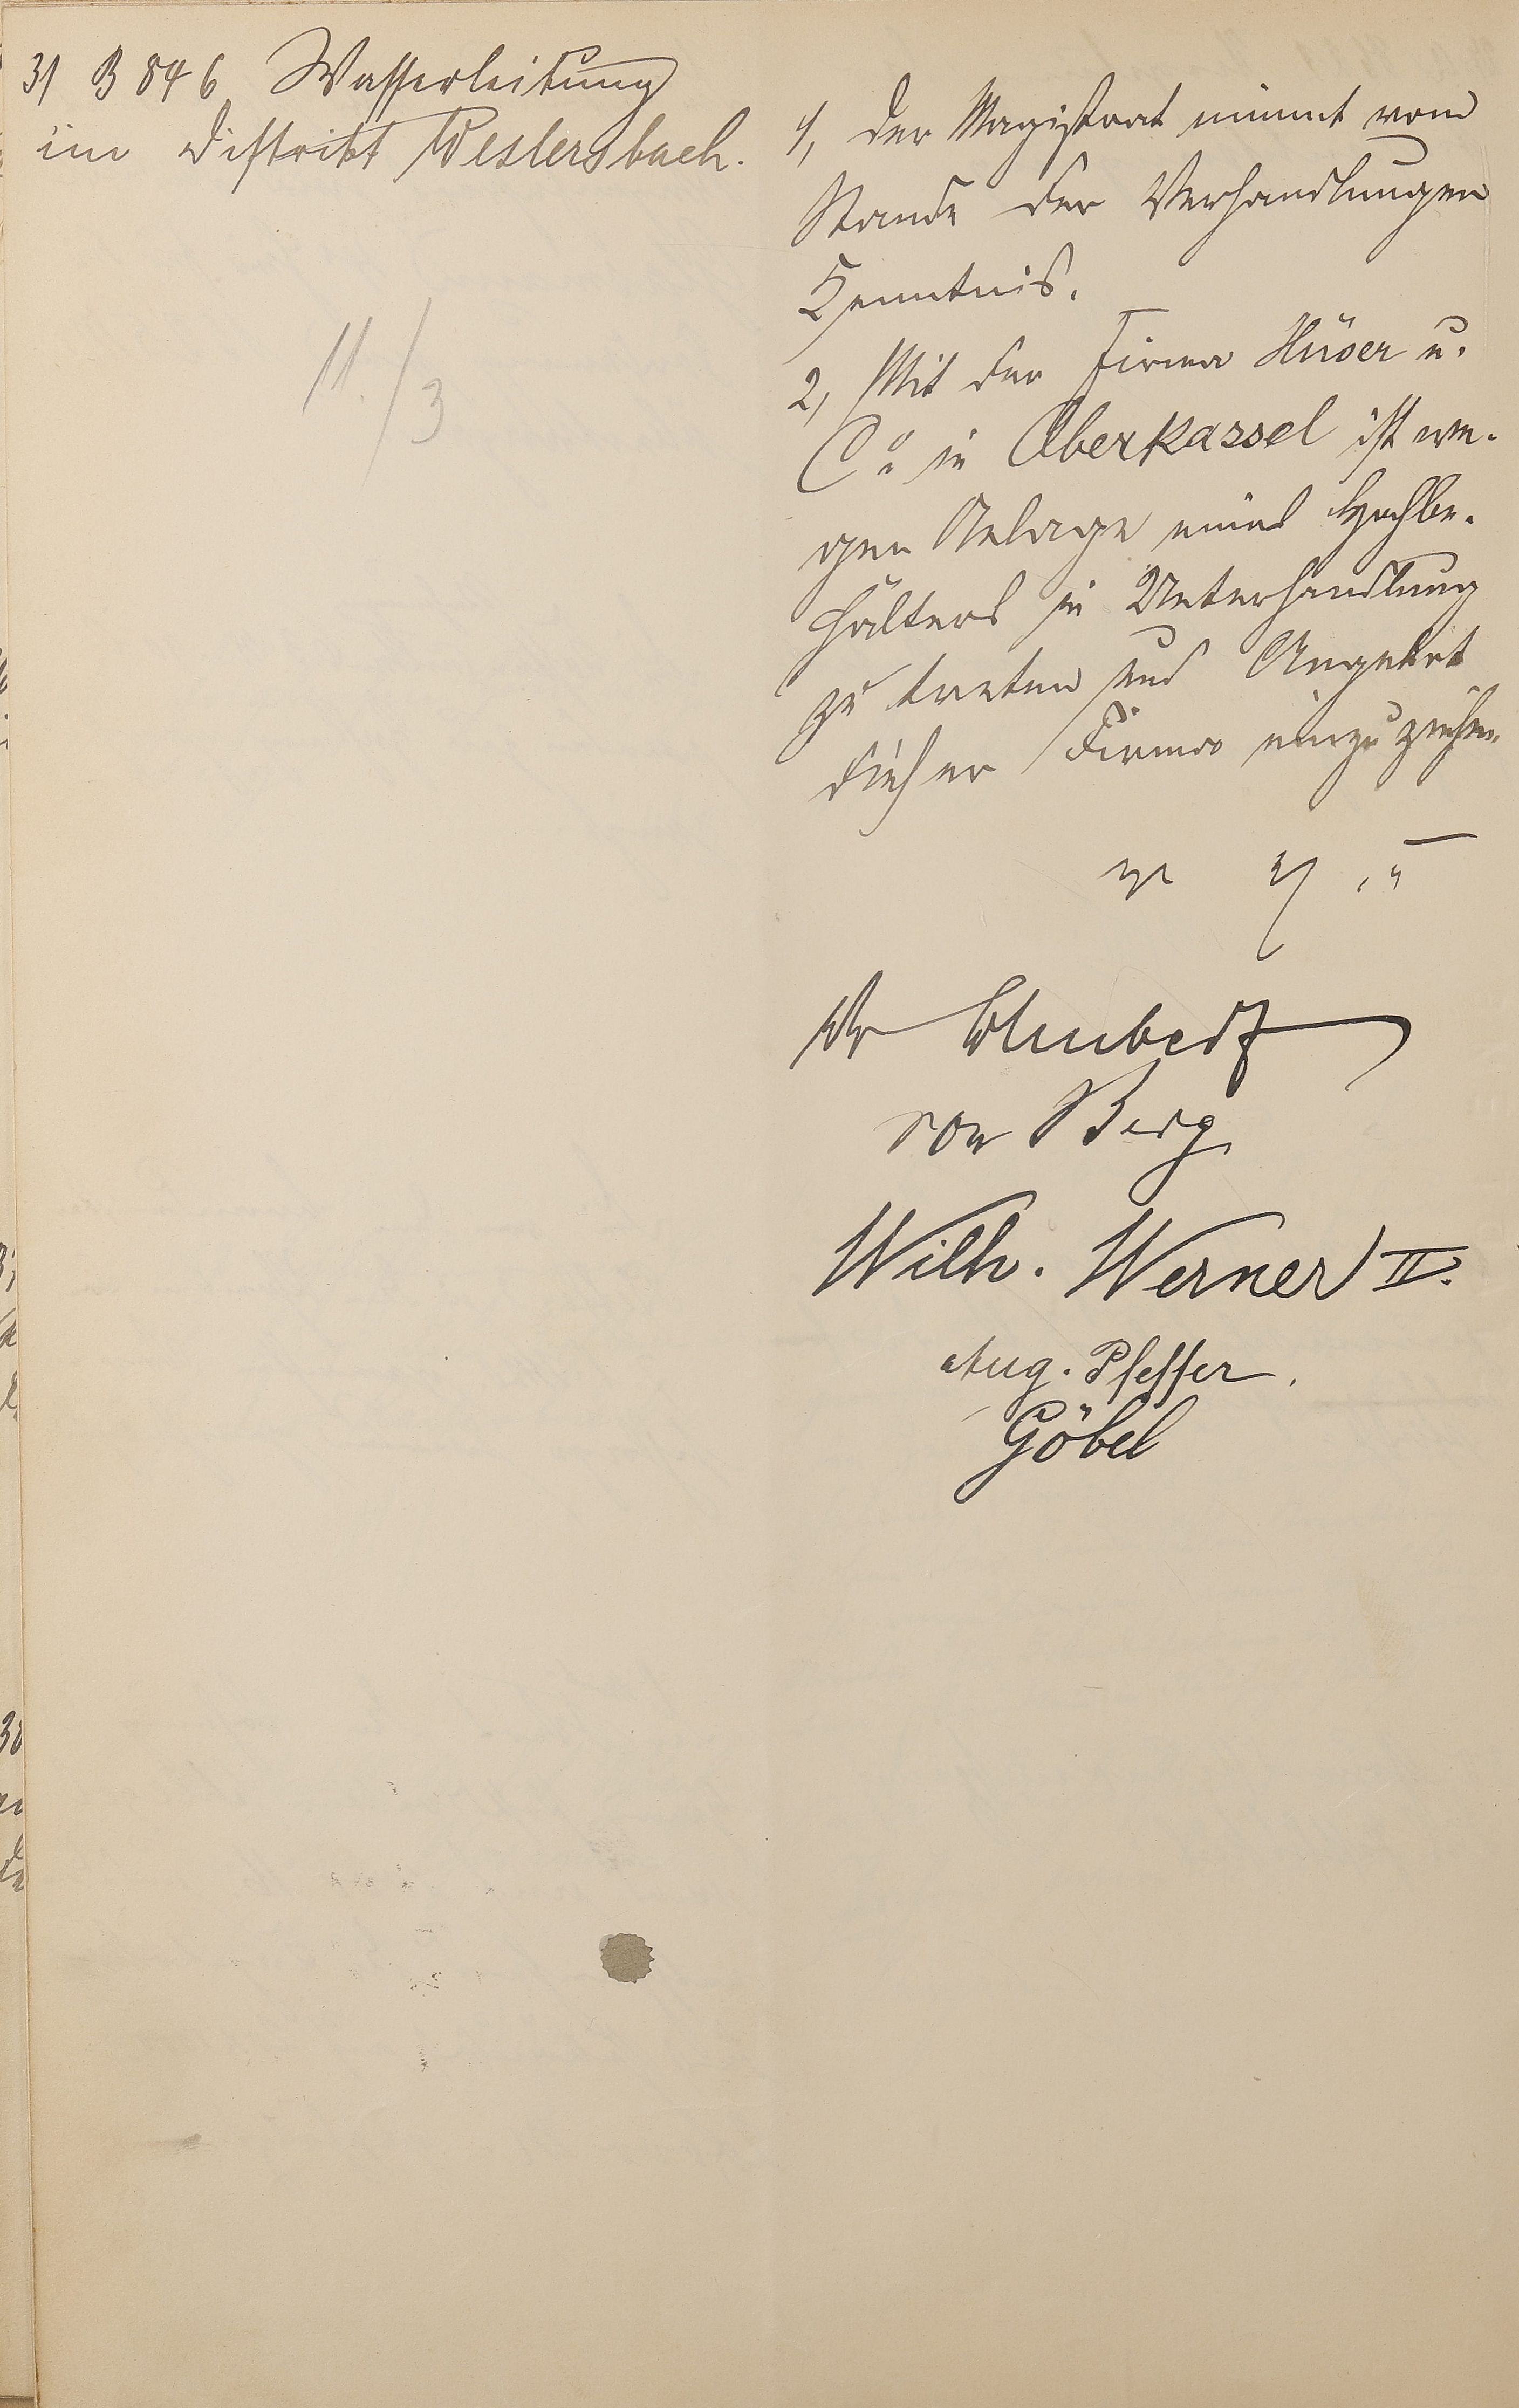 3) B 846 Wasserleitung
im Distrikt Weslersbach.
11./3
1, Der Magistrat nimmt vom
Stande der Verhandlungen
Kenntnis.
2, Mit der Firma Hüser u.
Co in Oberkassel ist we-
gen Anlage eines Hochbe-
hälters in Unterhandlung
zu treten und Angebot
dieser Firma einzuziehen.
von Berg
Wilh. Werner II.
Aug. Pfeffer.
Göbel